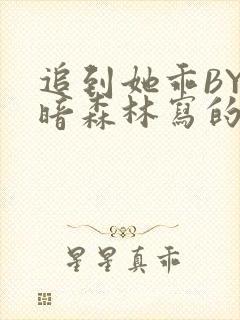 追到她乖BY
暗森林寫的
星星真乖